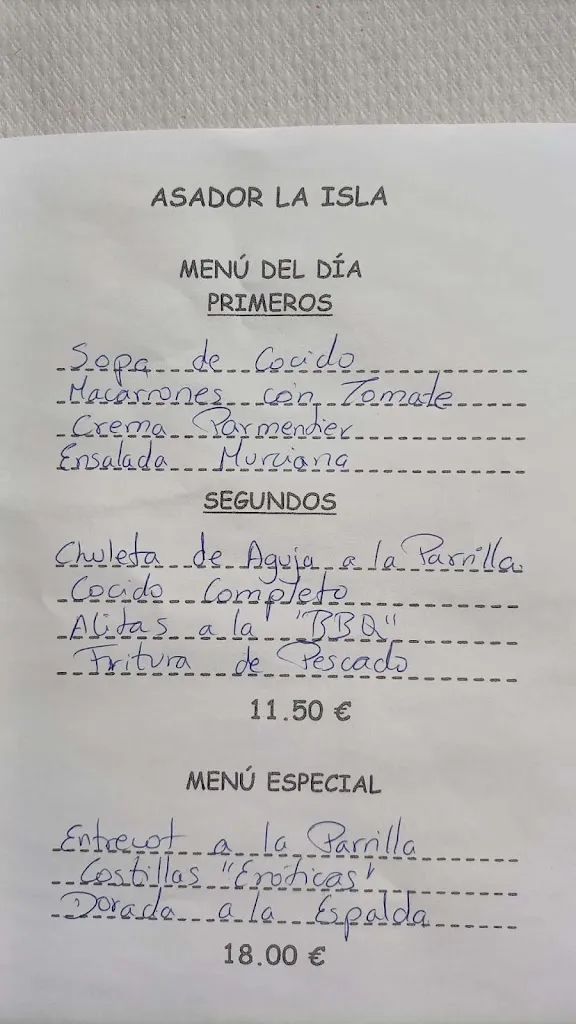 ASADOR LA ISLA
MENÚ DEL DÍA
PRIMEROS
Sopa de Cocido
Macarrones con Tomate
Crema Parmentier
Ensalada Murciana
SEGUNDOS
Chuleta de Aguja a la Parrilla
Cocido Completo
Alitas a la "BBQ"
Fritura de Pescado
11.50 €
MENÚ ESPECIAL
Entrecot a la Parrilla
Costillas "Eróticas"
Dorada a la Espalda
18.00 €